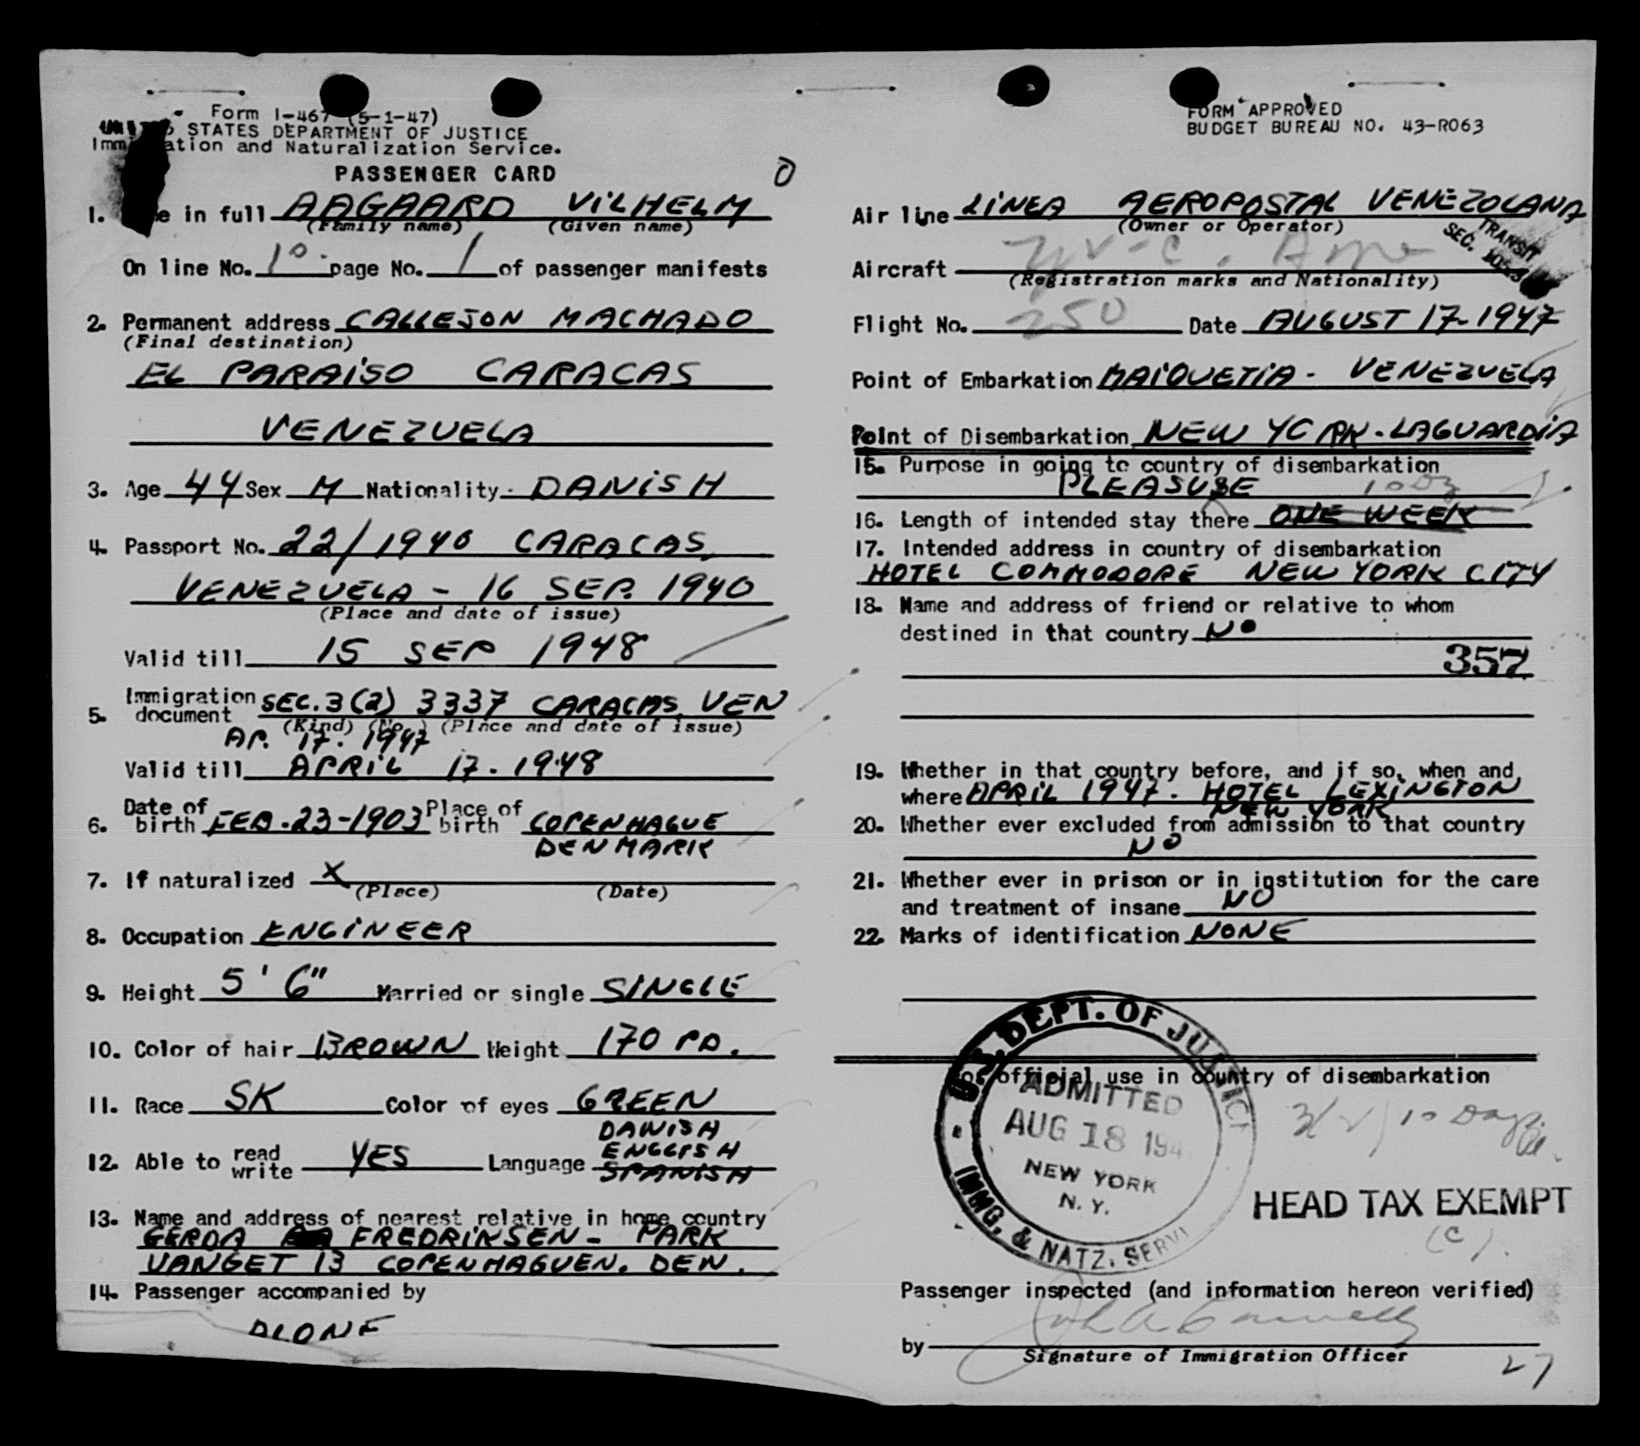 Form I-467 (5-1-47)
STATES DEPARTMENT OF JUSTICE
Immigration and Naturalization Service.
PASSENGER CARD
0
1. in full AAGAARD VILHELM
(Family name) (Given name)
On line No. 10 page No. 1 of passenger manifests
2. Permanent address CALLEJON MACHADO
(Final destination)
EL PARAISO CARACAS
VENEZUELA
3. Age 44 Sex M Nationality DANISH
4. Passport No. 22/1940 CARACAS,
VENEZUELA - 16 SEP. 1940
(Place and date of issue)
Valid till 15 SEP 1948
5. Immigration document SEC. 3(2) 3337 CARACAS VEN
(Kind) (No.) (Place and date of issue)
AP. 17. 1947
Valid till APRIL 17. 1948
6. Date of birth FEB. 23-1903 Place of birth COPENHAGUE
DENMARK
7. If naturalized X
(Place) (Date)
8. Occupation ENGINEER
9. Height 5' 6" Married or single SINGLE
10. Color of hair BROWN Weight 170 PD.
11. Race SK Color of eyes GREEN
12. Able to read write YES Language DANISH
ENGLISH
SPANISH
13. Name and address of nearest relative in home country
GERDA FREDRIKSEN - PARK
VANGET 13 COPENHAGUEN. DEN.
14. Passenger accompanied by
ALONE
FORM APPROVED
BUDGET BUREAU NO. 43-R063
Air line LINEA AEROPOSTAL VENEZOLANA
(Owner or Operator)
TRANSIT
SEC.
Aircraft YV-C
(Registration marks and Nationality)
Flight No. 250 Date AUGUST 17-1947
Point of Embarkation MAIQUETIA - VENEZUELA
Point of Disembarkation NEW YORK - LAGUARDIA
15. Purpose in going to country of disembarkation
PLEASURE
16. Length of intended stay there ONE WEEK
17. Intended address in country of disembarkation
HOTEL COMMODORE NEW YORK CITY
18. Name and address of friend or relative to whom
destined in that country NO
357
19. Whether in that country before, and if so, when and
where APRIL 1947. HOTEL LEXINGTON
NEW YORK
20. Whether ever excluded from admission to that country
NO
21. Whether ever in prison or in institution for the care
and treatment of insane NO
22. Marks of identification NONE
For official use in country of disembarkation
U.S. DEPT. OF JUSTICE
ADMITTED
AUG 18 194
NEW YORK
N.Y.
IMMG. & NATZ. SERV
3(2) 10 Days
HEAD TAX EXEMPT
(C)
Passenger inspected (and information hereon verified)
by
Signature of Immigration Officer
27